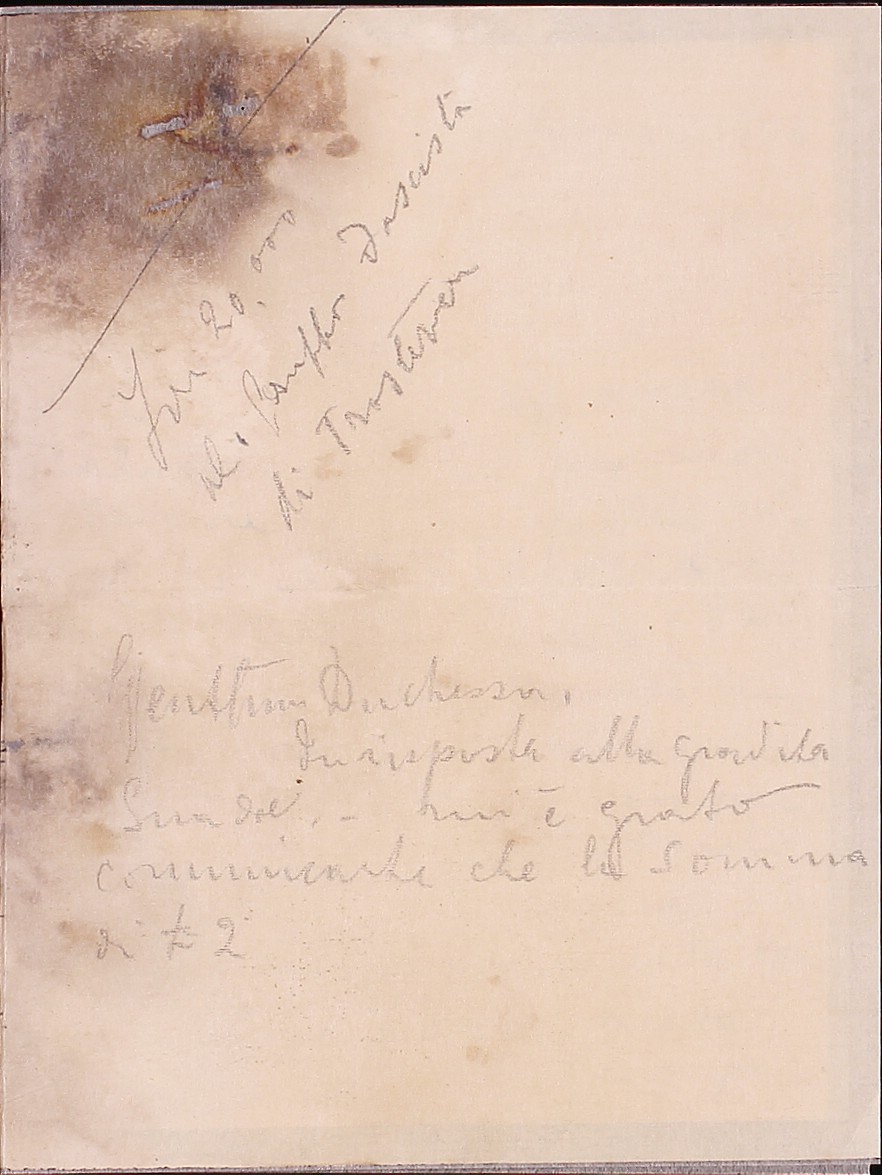 Lire 20.000
al Gruppo Fascista
di Trastevere
Gentilma Duchessa,
In risposta alla gradita
Sua del . - mi è grato
comunicarle che la somma
di £ 2